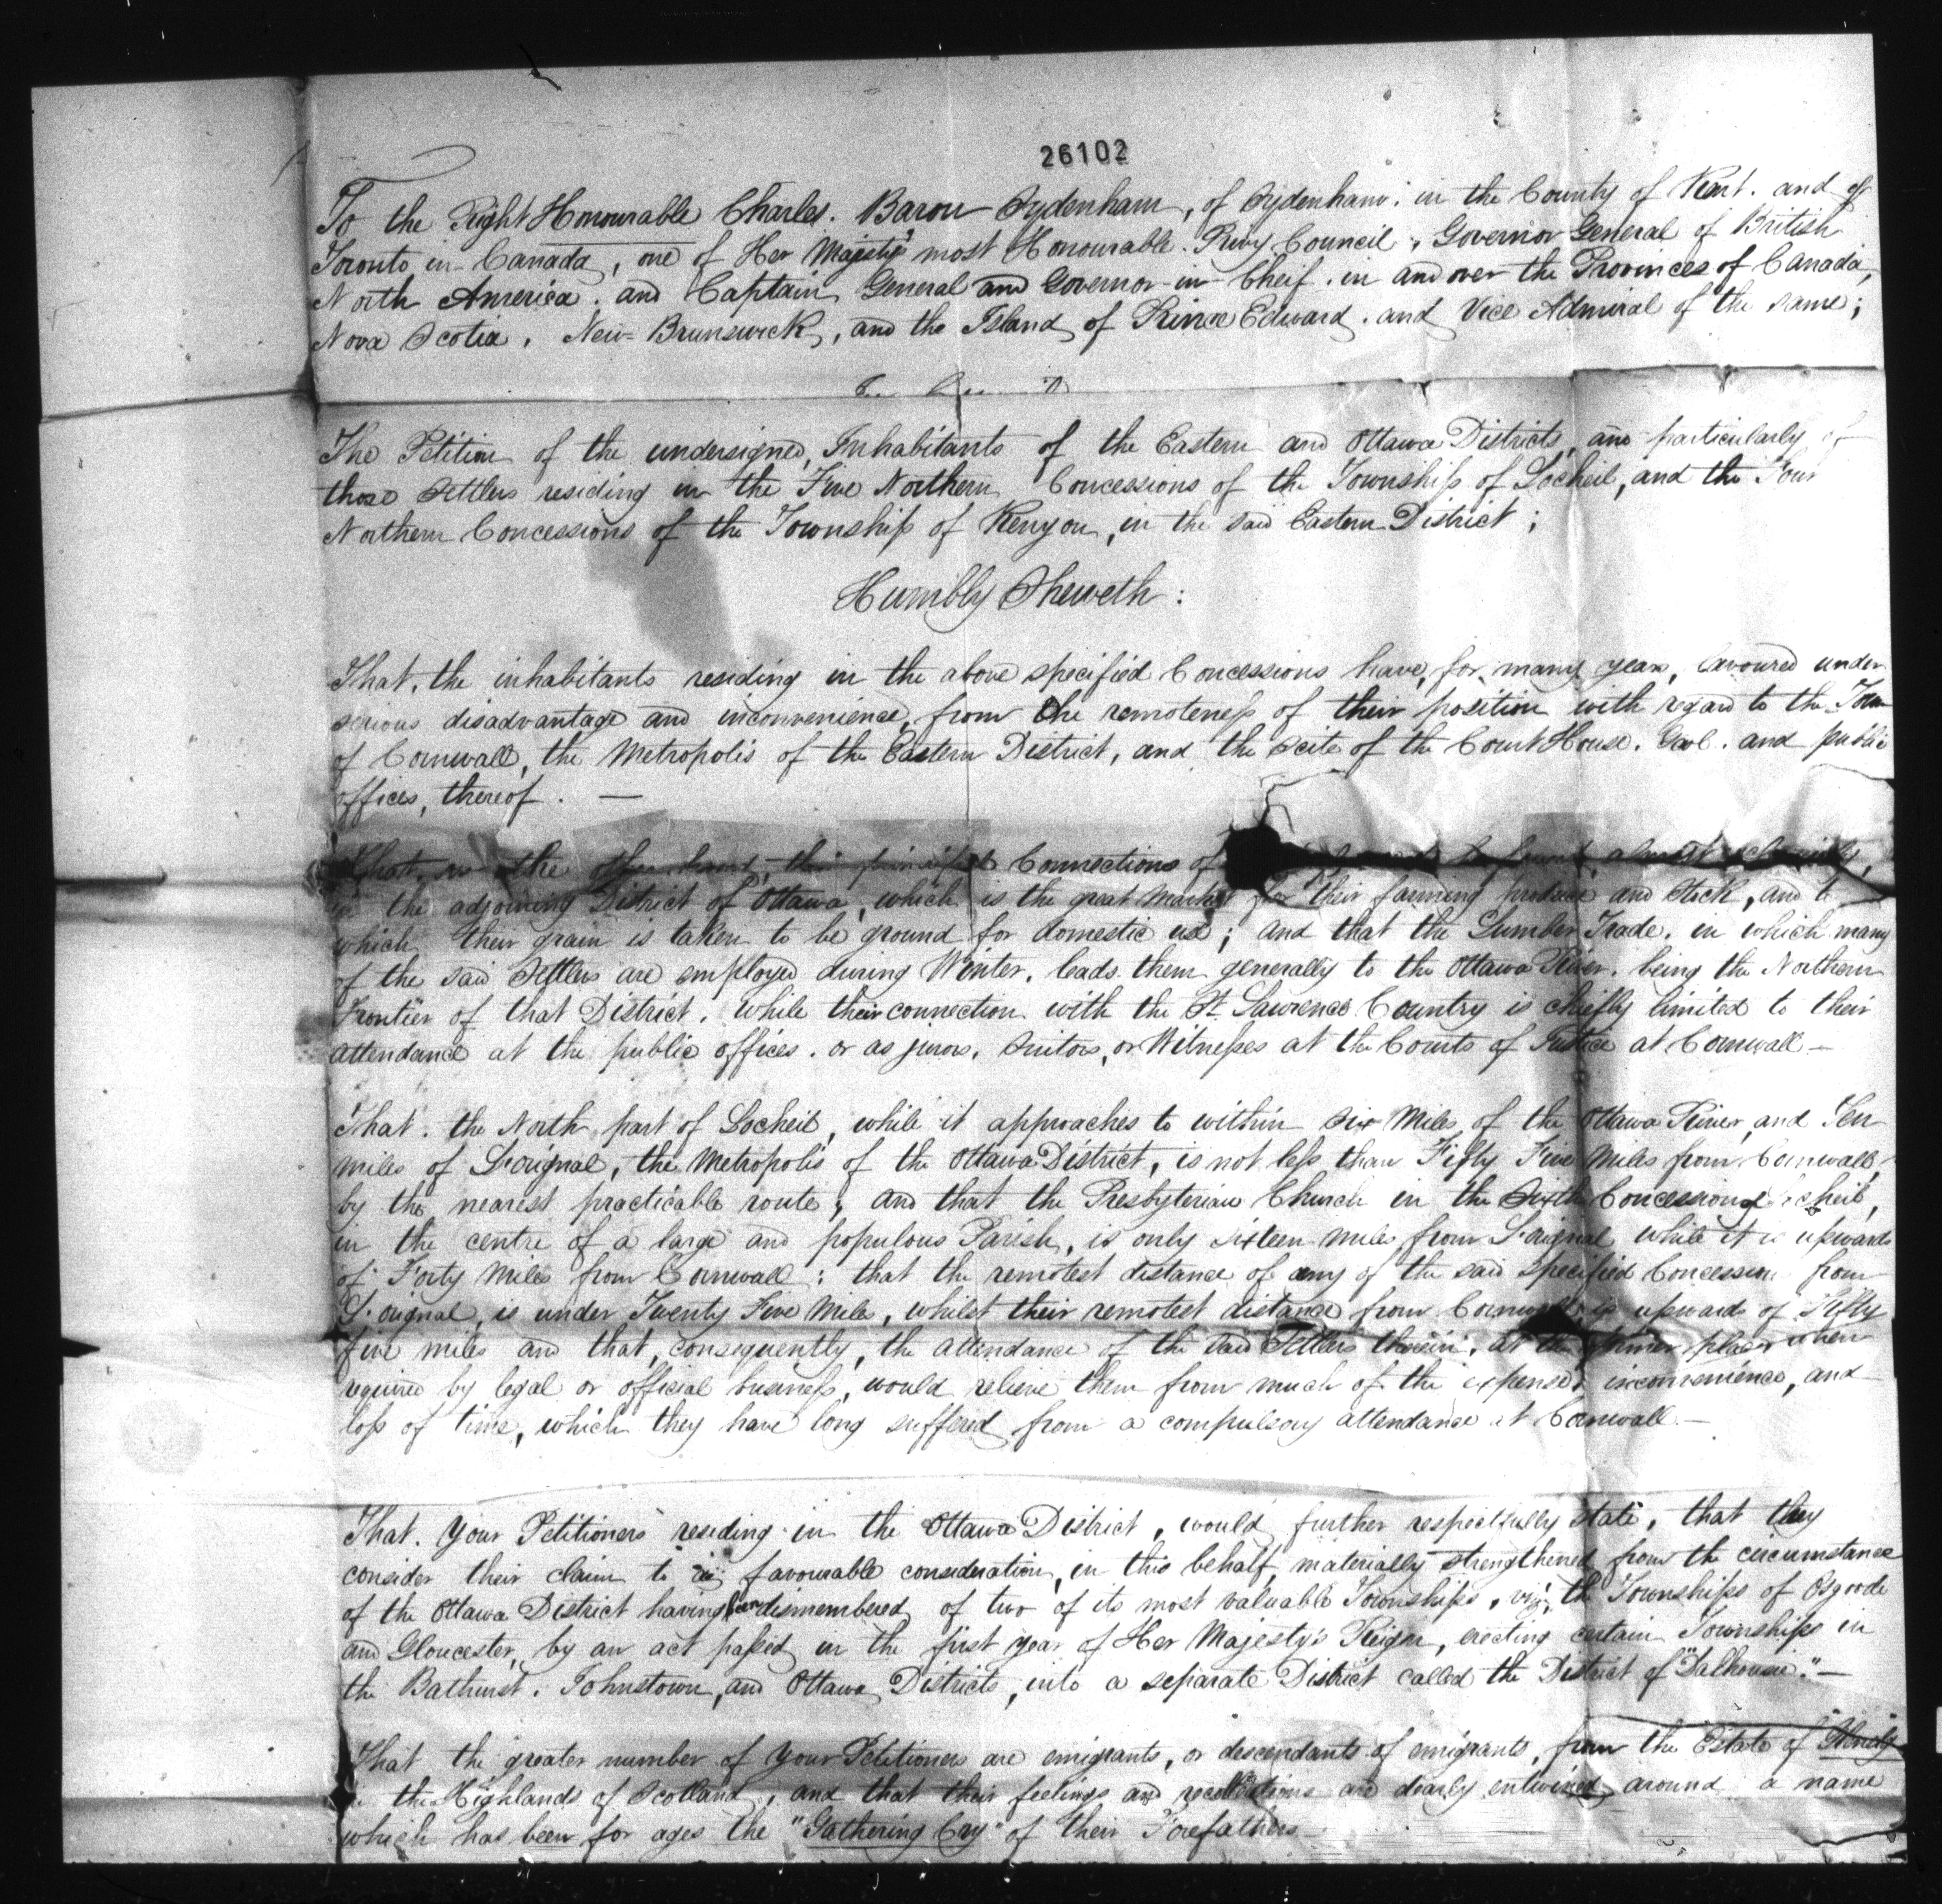 26102
To the Right Honourable Charles. Baron Sydenham, of Sydenham. in the County of Kent. and of
Toronto in Canada, one of Her Majesty's most Honourable. Privy Council, Governor General of British
North America. and Captain General and Governor-in-Cheif. in and over the Provinces of Canada,
Nova Scotia, New-Brunswick, and the Island of Prince Edward. and Vice Admiral of the same;
The Petition of the undersigned, Inhabitants of the Eastern and Ottawa Districts, and particularly of
those Settlers residing in the Five Northern Concessions of the Township of Locheil, and the Four
Northern Concessions of the Township of Kenyon, in the said Eastern District;
Humbly Sheweth:
That, the inhabitants residing in the above specified Concessions have, for many years, lavoured under
serious disadvantage and inconvenience, from the remoteness of their position with regard to the Town
of Cornwall, the Metropolis of the Eastern District, and the scite of the Court House. Gaol. and public
offices, thereof. —
That, on the other hand, their principal Connections of almost exclusively,
in the adjoining District of Ottawa, which is the great Market for their farming produce and Stock, and to
which their grain is taken to be ground for domestic use; and that the Lumber Trade. in which many
of the said Settlers are employed during Winter. leads them generally to the Ottawa River. being the Northern
Frontier of that District. While their connection with the St. Lawrence Country is chiefly limited to their
attendance at the public offices. or as jurors, Suitors, or Witnesses at the Courts of Justice at Cornwall —
That. the North part of Locheil, while it approaches to within Six Miles of the Ottawa River, and Ten
miles of L'orignal, the Metropolis of the Ottawa District, is not less than Fifty Five Miles from Cornwall
by the nearest practicable route; and that the Presbyterian Church in the Sixth Concession of Locheil,
in the centre of a large and populous Parish, is only Sixteen miles from L'orignal while it is upwards
of Forty Miles from Cornwall: that the remotest distance of any of the said specified Concession from
L'orignal, is under Twenty Five Miles, whilst their remotest distance from Cornwall, is upwards of Fifty
five miles and that, consequently, the attendance of the said Settlers therein, at the former place when
required by legal or official business, would relieve them from much of the expense, inconvenience, and
loss of time, which they have long suffered from a compulsory attendance at Cornwall. —
That. Your Petitioners residing in the Ottawa District, would further respectfully state, that they
consider their claim to favourable consideration, in this behalf, materially strengthened from the circumstance
of the Ottawa District having been dismembered of two of its most valuable Townships, viz; the Townships of Osgoode
and Gloucester, by an act passed in the first year of Her Majesty's Reign, erecting certain Townships in
the Bathurst. Johnstown, and Ottawa Districts, into a separate District called the District of "Dalhousie." —
That the greater number of Your Petitioners are emigrants, or descendants of emigrants, from the Estate of
in the Highlands of Scotland, and that their feelings and recollections are dearly entwined around a name
which has been for ages the "Gathering Cry" of their Forefathers